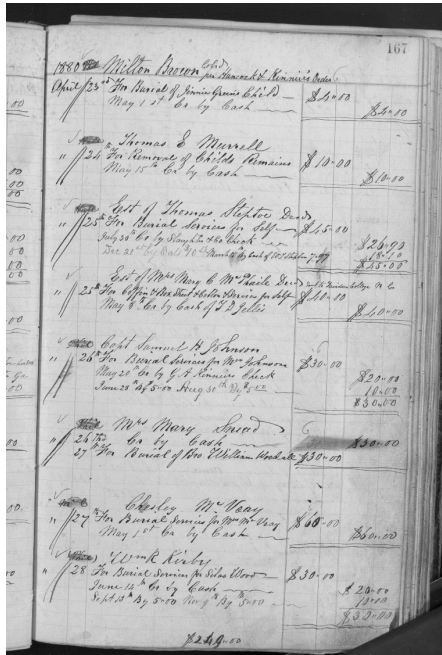 167
1880 Milton Brown Cold per Hancock & Kinnier's Order
April 23rd For Burial of Jinnie Greens Child $4-00
May 1st Cr by Cash $4-00
Thomas E Murrell
" 24 For Removal of Childs Remains $10-00
May 15th Cr by Cash $10-00
Est of Thomas Steptoe Decd
" 25th For Burial Services for Self $45-00
July 30th Cr by Slaughter & Co Check
Dec 21st by
$45-00
Est of Mrs Mary C Decd
" 25th For Coffin & Box & Services for Self $40-00
May 8th Cr by Cash of $40-00
Capt Samuel H Johnson
" 26th For Burial Services for Mrs Johnson $30-00
May 20th Cr by G. A Kinniers Check $20-00
June 28th By 5-00 Aug 30th By 5-00 10-00
$30-00
Mrs Mary Snead
" 26 Cr by Cash $30-00
27th For Burial of Bro William $30-00
Chesley McVeay
" 27th For Burial Services for Mrs McVeay $60-00
May 1st Cr by Cash $60-00
Wm R Kirby
" 28 For Burial Services for Silas Wood $30-00
June 14th Cr by Cash $20-00
Sept 13th By 5-00 Nov 9th By 5-00 10-00
$30-00
$249-00